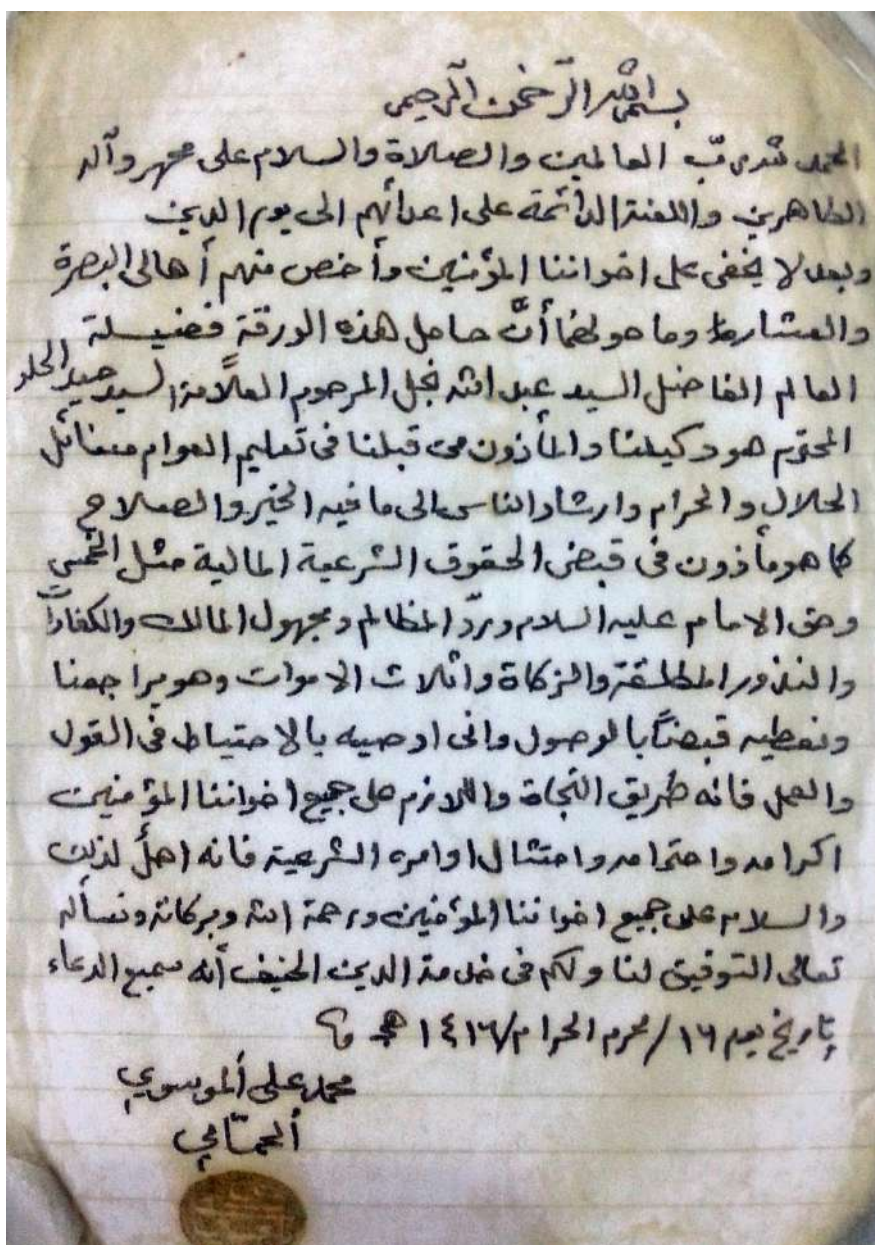 بسم الله الرحمن الرحيم
الحمد لله ربّ العالمين والصلاة والسلام على محمد وآله
الطاهرين واللعنة الدائمة على اعدائهم الى يوم الدين
وبعد لا يخفى على اخواننا المؤمنين وأخص منهم أهالي البصرة
والعشار وما حولهما أنّ حامل هذه الورقة فضيلة
العالم الفاضل السيد عبد الله نجل المرحوم العلّامة السيد حميد الحلو
المحترم هو وكيلنا والمأذون من قبلنا في تعليم العوام مسائل
الحلال والحرام وارشاد الناس الى ما فيه الخير والصلاح
كما هو مأذون في قبض الحقوق الشرعية المالية مثل الخمس
وحق الامام عليه السلام وردّ المظالم ومجهول المالك والكفارات
والنذور المطلقة والزكاة واثلاث الاموات وهو يراجعنا
ونعطيه قبضاً بالوصول واني اوصيه بالاحتياط في القول
والعمل فانه طريق النجاة واللازم على جميع اخواننا المؤمنين
اكرامه واحترامه وامتثال اوامره الشرعية فانه اهلٌ لذلك
والسلام على جميع اخواننا المؤمنين ورحمة الله وبركاته ونسأله
تعالى التوفيق لنا ولكم في خدمة الدين الحنيف أنه سميع الدعاء
بتاريخ يوم ١٦/محرم الحرام/١٤١٦ هـ
محمد علي الموسوي
الحمّامي